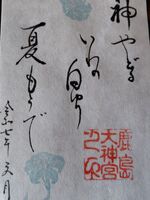 神やどる
白ゆり
夏もうで
令和七年 文月
鹿島
大神宮
之印